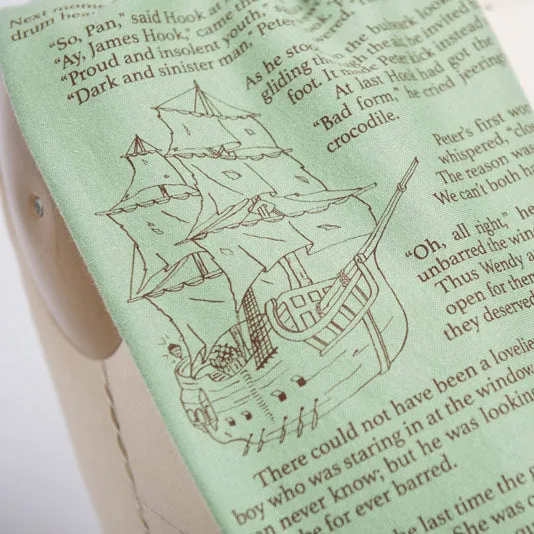 Next mome
drum bea
"So, Pan," said Hook at
"Ay, James Hook," came th
"Proud and insolent youth," 
"Dark and sinister man," Peter
As he stoo
gliding th the bulwark look
foot. It made Peter kick instead
At last Hook had got the
"Bad form," he cried jeering
crocodile.
Peter's first wor
whispered, "clo
The reason was
We can't both ha
"Oh, all right," he
unbarred the win
Thus Wendy a
open for them
they deserved
There could not have been a lovelie
boy who was staring in at the window
n never know; but he was lookin
he for ever barred.
he last time the g
She was